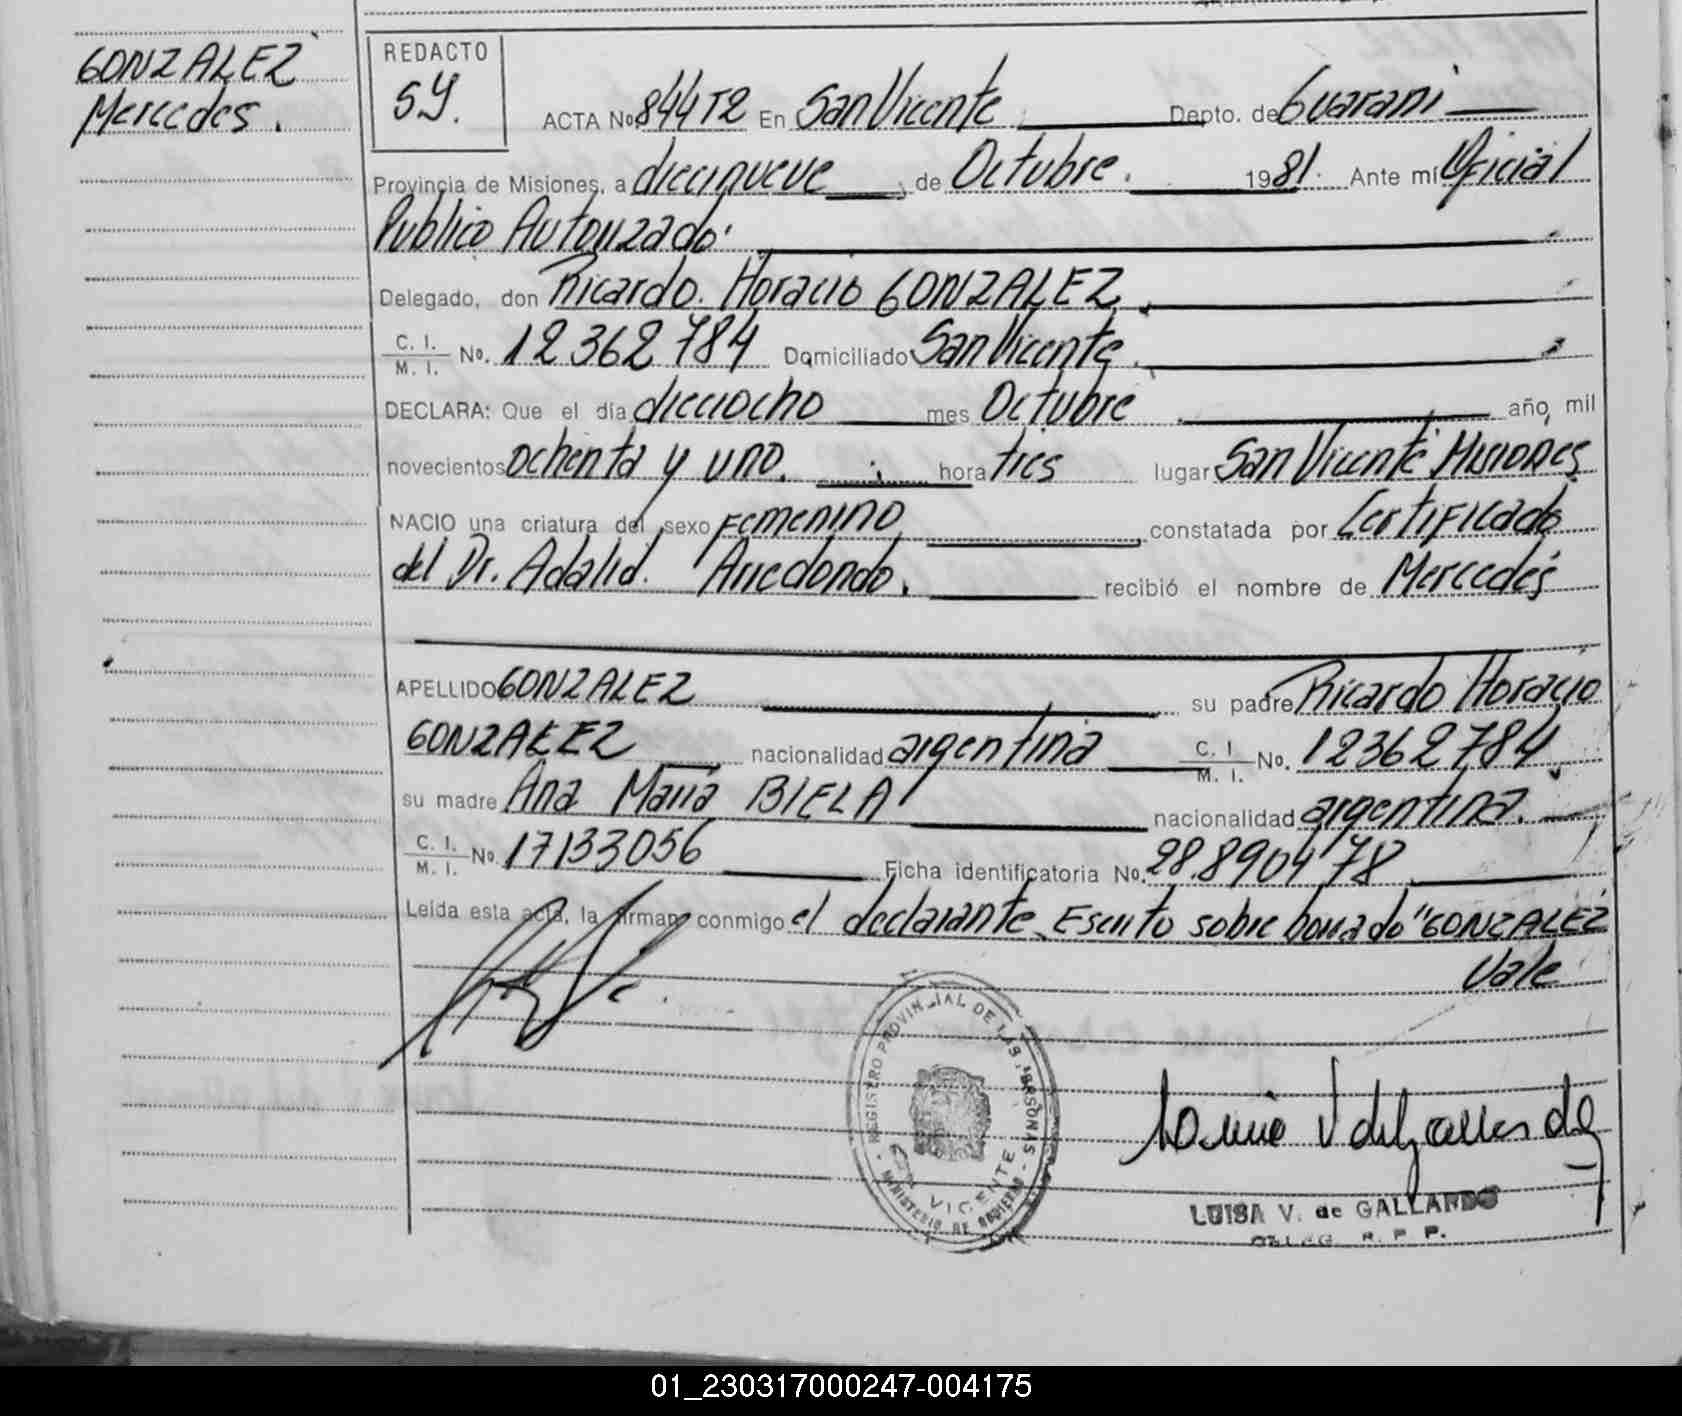 GONZALEZ
Mercedes.
REDACTO
SY.
ACTA No. 844T2 En San Vicente Depto. de Guarani
Provincia de Misiones, a diecinueve de Octubre. 1981. Ante mí Oficial
Publico Autorizado.
Delegado, don Ricardo Horacio GONZALEZ
C. I.
M. I. No. 12362784 Domiciliado San Vicente.
DECLARA: Que el día dieciocho mes Octubre año, mil
novecientos ochenta y uno. hora tres lugar San Vicente Misiones
NACIO una criatura del sexo Femenino constatada por Certificado
del Dr. Adalid. Arredondo. recibió el nombre de Mercedes
APELLIDO GONZALEZ su padre Ricardo Horacio
GONZALEZ nacionalidad argentina C. I.
M. I. No. 12362784.
su madre Ana María BIELA nacionalidad argentina.
C. I.
M. I. No. 17133056 Ficha identificatoria No. 28.890478
Leída esta acta, la firman conmigo el declarante. Escrito sobre borrado "GONZALEZ
Vale
REGISTRO PROVINCIAL DE LAS PERSONAS
MINISTERIO DE GOBIERNO
VICENTE
LUISA V. de GALLARDO
DELEG. R. P. P.
01_230317000247-004175